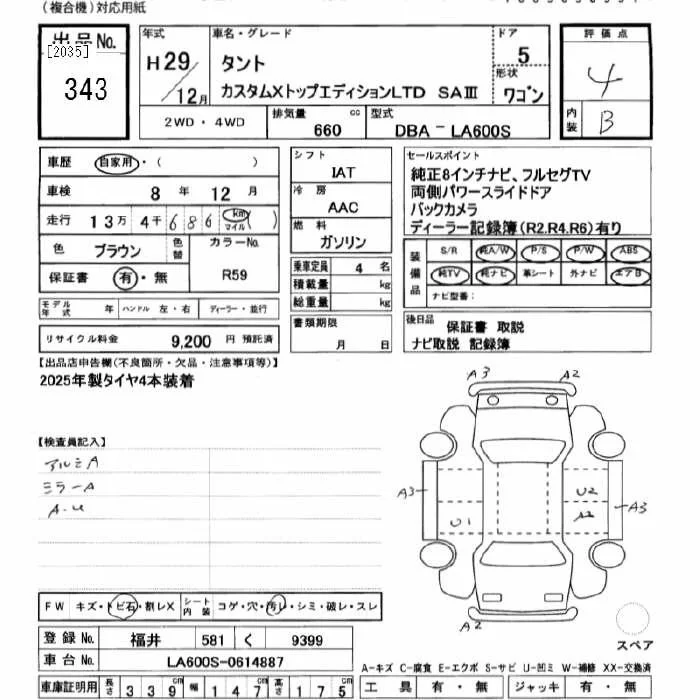 (複合機)対応用紙
出品No.
[2035]
343
年式
H29/12月
車名・グレード
タント
カスタムXトップエディションLTD SAⅢ
ドア
5
形状
ワゴン
評価点
4
内装
B
2WD・4WD
排気量
660 cc
型式
DBA-LA600S
車歴 自家用・( )
車検 8年 12月
走行 13万4千686 km マイル
色 ブラウン 色替 カラーNo. R59
保証書 有・無
モデル年式 年 ハンドル 左・右 ディーラー・並行
リサイクル料金 9,200円 預託済
シフト
IAT
冷房
AAC
燃料
ガソリン
乗車定員 4名
積載量 kg
総重量 kg
書類期限
月 日
セールスポイント
純正8インチナビ、フルセグTV
両側パワースライドドア
バックカメラ
ディーラー記録簿(R2.R4.R6)有り
装備品
S/R 純A/W P/S P/W ABS
純TV 純ナビ 革シート 外ナビ エアB
ナビ型番:
後日品 保証書 取説
ナビ取説 記録簿
【出品店申告欄(不良箇所・欠品・注意事項等)】
2025年製タイヤ4本装着
【検査員記入】
アルミA
ミラーA
A-U
A3
A2
A3
U2
U1
A2
A3
A2
スペア
FW キズ・トビ石・割レX シート内装 コゲ・穴・汚レ・シミ・破レ・スレ
登録No. 福井 581 く 9399
車台No. LA600S-0614887
車庫証明用 長さ 339cm 幅 147cm 高さ 175cm
A-キズ C-腐食 E-エクボ S-サビ U-凹ミ W-補修 XX-交換済
工具 有・無 ジャッキ 有・無